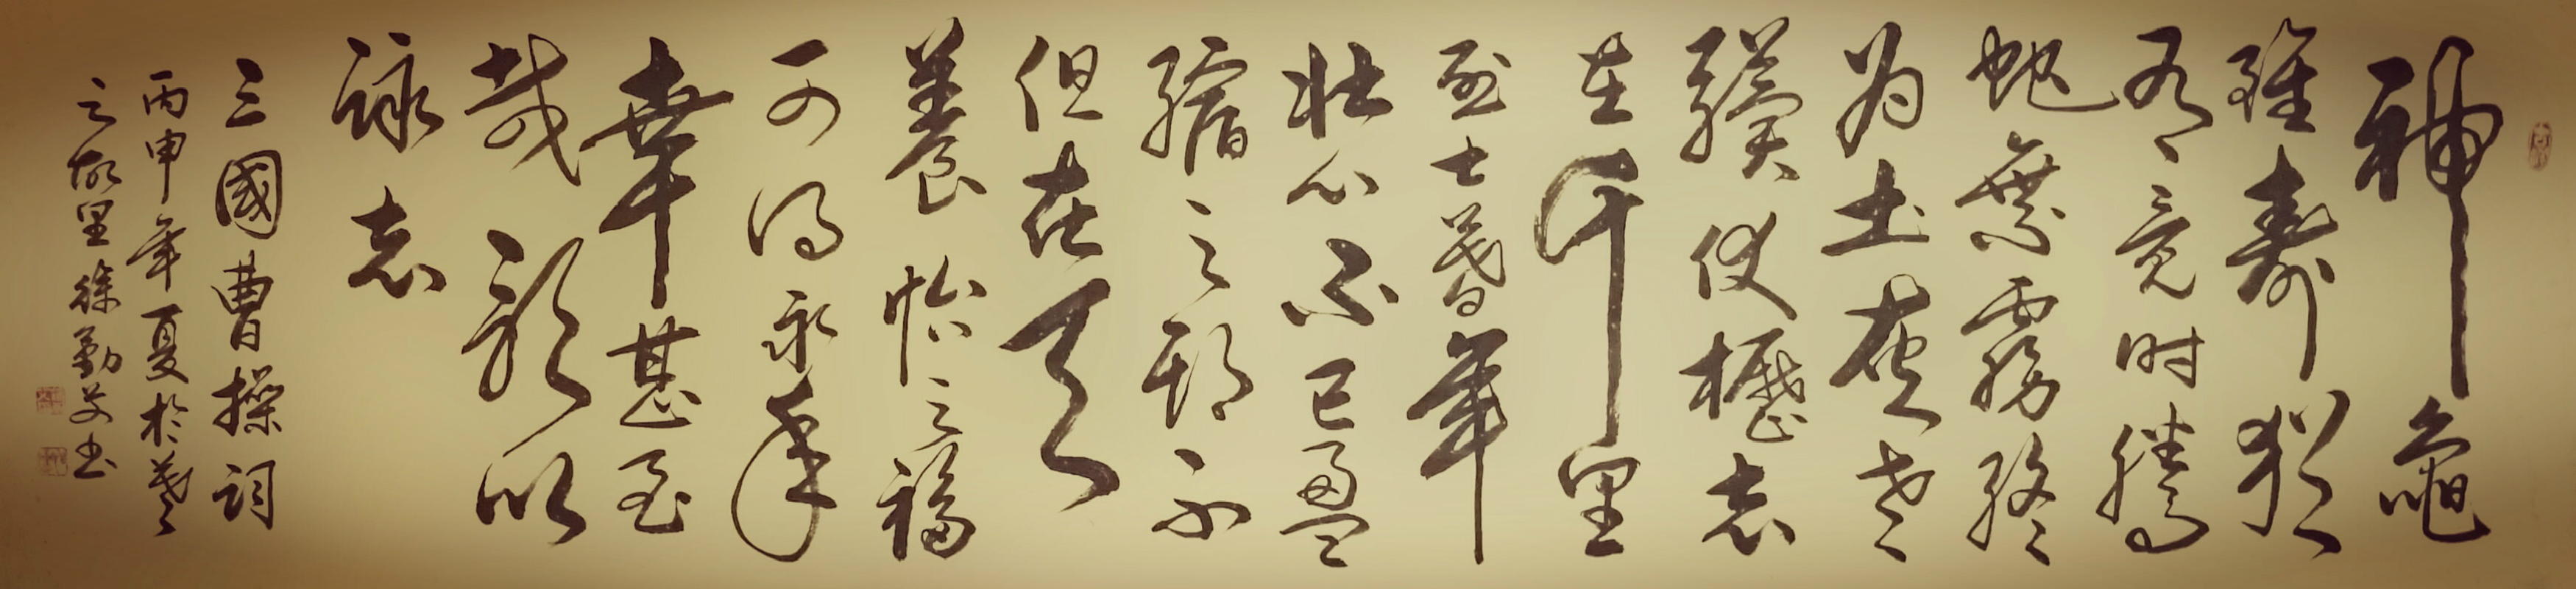 神龜
雖壽猶
有竟时騰
蛇乘霧終
为土灰老
驥伏櫪志
在千里
烈士暮年
壮心不已盈
縮之期不
但在天
養怡之福
可得永年
幸甚至
哉歌以
詠志
三國曹操詞
丙申年夏於羲
之故里徐勤书